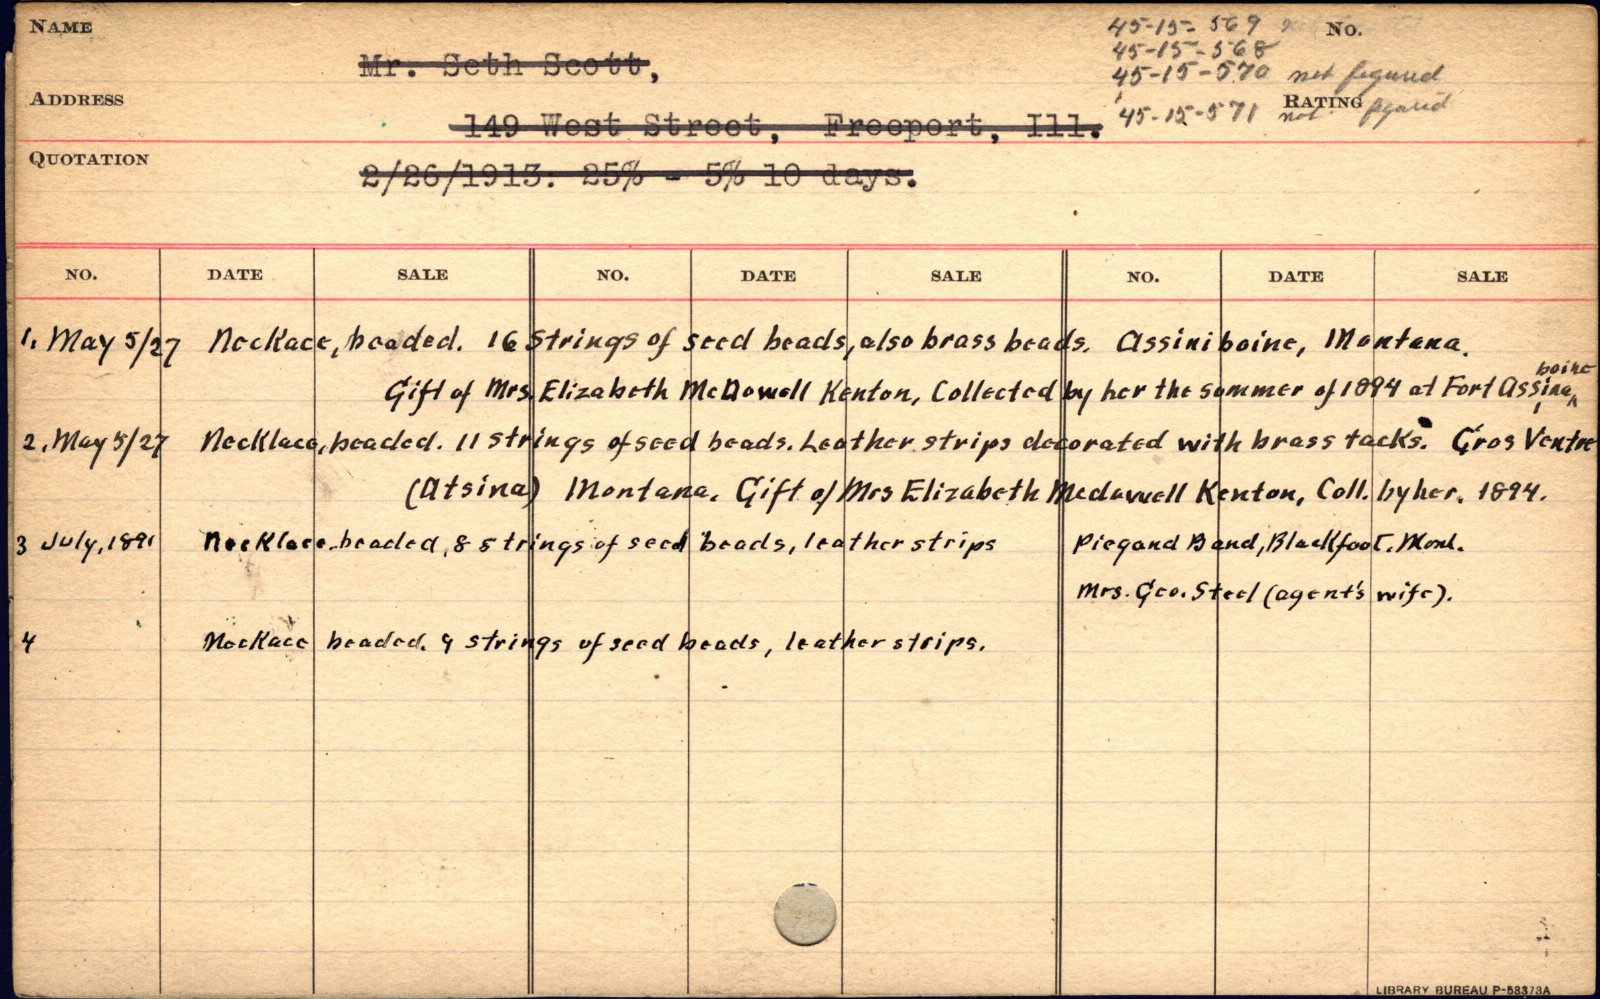 NAME
45-15-569
No.
45-15-568
Mr. Seth Scott,
45-15-570 not figured
ADDRESS
RATING
45-15-571 not figured
149 West Street, Freeport, Ill.
QUOTATION
2/26/1913: 25% - 5% 10 days.
NO. DATE SALE NO. DATE SALE NO. DATE SALE
1. May 5/27 Necklace, beaded. 16 strings of seed beads, also brass beads. Assiniboine, Montana.
boine
Gift of Mrs. Elizabeth McDowell Kenton, Collected by her the sommer of 1894 at Fort Assina
2. May 5/27 Necklace, beaded. 11 strings of seed beads. Leather strips decorated with brass tacks. Gros Ventre
(Atsina) Montana. Gift of Mrs Elizabeth Mcdowell Kenton, Coll. by her. 1894.
3 July, 1891 Necklace beaded, 8 strings of seed beads, leather strips Piegand Band, Blackfoot. Mont.
Mrs. Geo. Steel (agent's wife).
4 Necklace beaded. 9 strings of seed beads, leather strips.
LIBRARY BUREAU P-58373A